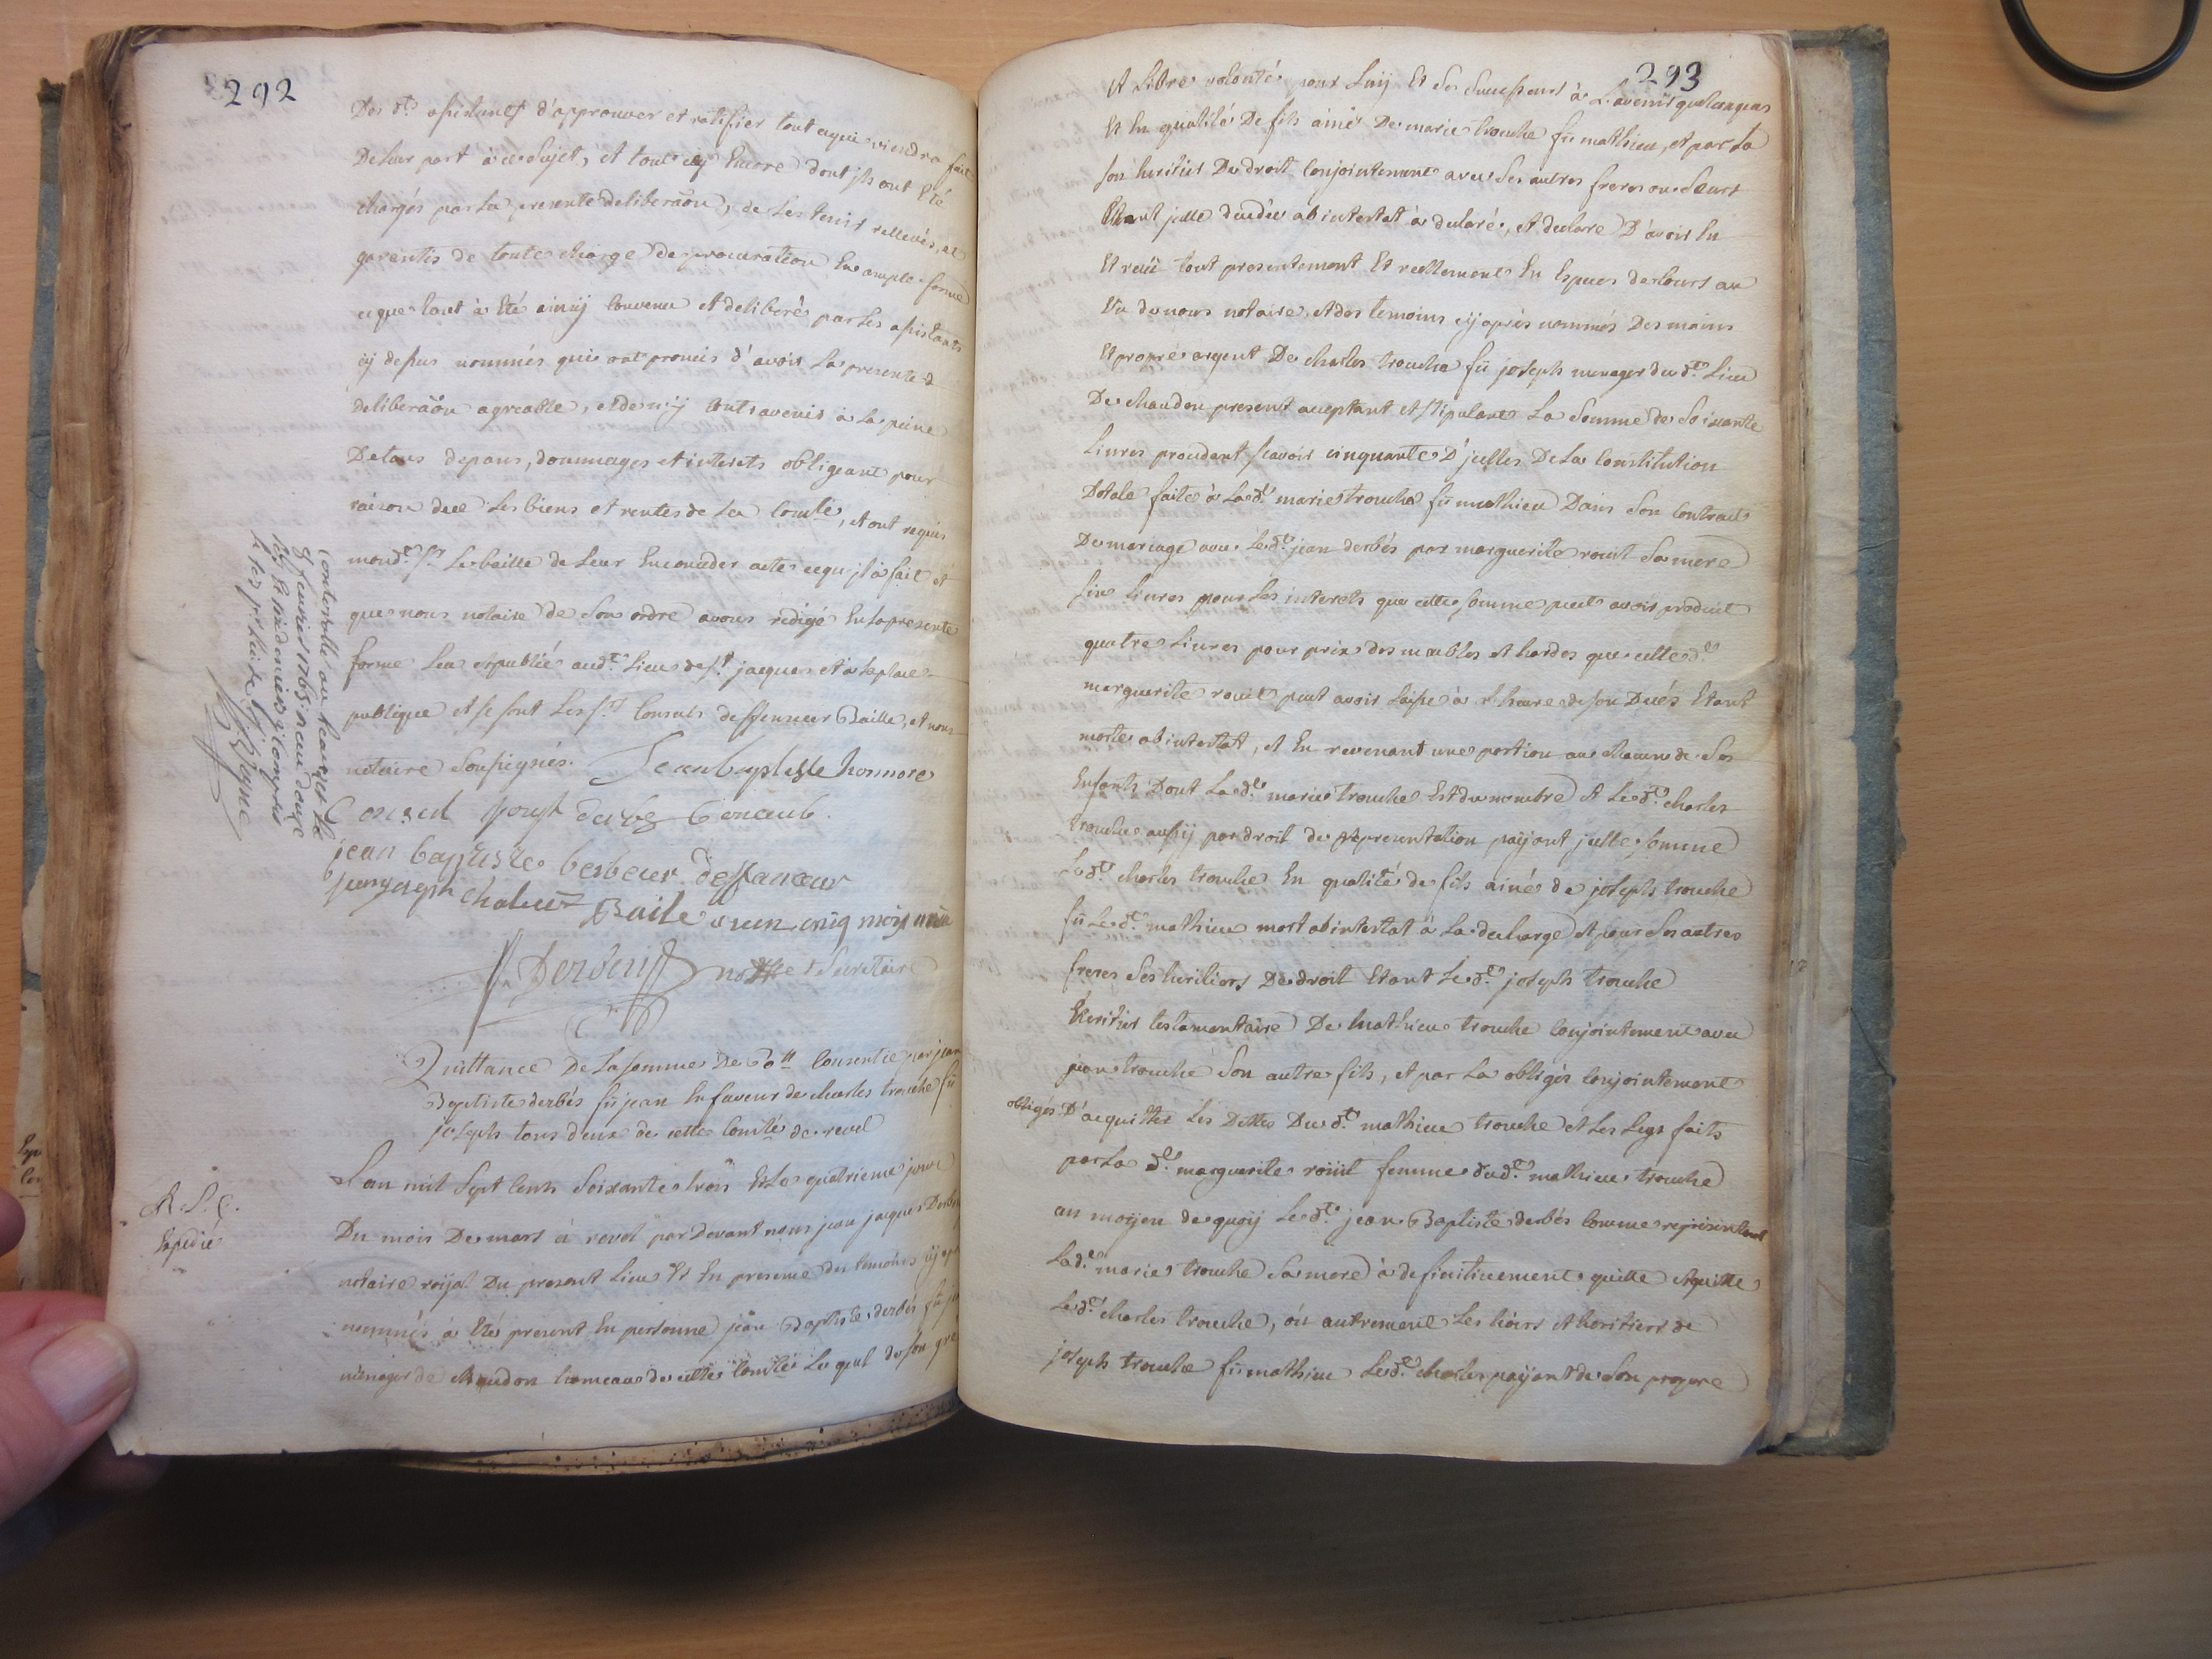 292
Des dts assistants d'approuver et ratifier tout ce qui viendra fait
De leur part à ce sujet, et tout cy Encore dont jls ont Eté
chargés par La presente deliberaõn, de Les tenir rellevés, et
garentis de toute charge de procuration En ample forme
ce que tout à Eté ainsÿ Convenu et deliberé par Les assistants
cÿ dessus nommés qui ont promis d'avoir La presente d
deliberaõn agreable, et de n'ÿ Contravenir à La peine
De tous depans, dommages et interets obligeant pour
raison dece Les biens et rentes de La Comté, et ont requis
mond.t Sr Le baille de Leur En conceder acte ce qu'jl à fait et
que nous notaire de Son ordre avons redigé En La presente
forme Leu et publié aud.t Lieu de St jacques et à La place
publique et se sont Les Srs Consuls deffenseur Baille, et nous
notaire Soussignés. Jean baptiste honnore
Consul
jean baptiste berbeier deffanceur
jean joseph chaluet Baile
Derbes nottre et Secretaire
Controllé au
9 fevrier 1763 reçu douze
Quittance De La somme De 60tt Consentie par jean
Baptiste derbés fû jean En faveur de charles trouche fû
joseph tous deux de cette Comté de revel
R. P. C.
Expedié
L'an mil Sept Cents Soixante trois Et Le quatrieme jour
Du mois De mars à revel par Devant nous jean jacques Derbes
notaire roÿal Du present Lieu Et En presence des temoins cÿ aprés
nommés à Eté present En personne jean Baptiste derbés fû jean
menager de chaudon hameau de cette Comté Le quel de son gré
293
et Libre volonté pour Luÿ Et Ses Successeurs à L'avenir quelconques
Et En qualité De fils ainé De marie trouche fû mathieu, et par La
son heritier De droit Conjointement avec Ses autres freres ou Sœurs
Etant jcelle decedée ab intestat à declaré, et declare D'avoir Eu
Et reçû tout presentement Et reellement En Especes de Cours au
Vû de nous notaire, et des temoins cÿ aprés nommés Des mains
Et propre argent De charles trouche fû joseph menager du dt Lieu
De chaudon present acceptant et stipulant La Somme de Soixante
Livres procedant sçavoir cinquante D'jcelles De La Constitution
Dotale faite à La dte marie trouche fû mathieu Dans Son Contract
De mariage avec Le dt jean derbés par marguerite roüit Sa mere
Six Livres pour Les interets que cette somme peut avoir produit
quatre Livres pour prix des meubles et hardes que cette dte
marguerite roüit peut avoir Laissé à L'heure de son Decés Etant
morte ab intestat, et En revenant une portion au chacun de Ses
Enfants Dont La dte marie trouche Est du nombre et Le dt charles
trouche aussÿ par droit de representation païant jcelle somme
Le dt charles trouche En qualité de fils ainé de joseph trouche
fû Le dt mathieu mort ab intestat à La decharge et pour Ses autres
freres Ses heritiers De droit Etant Le dt joseph trouche
heritier testamentaire De mathieu trouche Conjointement avec
jean trouche Son autre fils, et par La obligés Conjointement
obligés D'acquitter Les Dettes Du dt mathieu trouche et Les Legs faits
par La dte marguerite roüit femme du dt mathieu trouche
au moÿen de quoÿ Le dt jean Baptiste derbés Comme representant
La dte marie trouche Sa mere à definitivement quitté et quitte
Le dt charles trouche, ou autrement Les hoirs et heritiers de
joseph trouche fû mathieu Le dt charles païant de Son propre